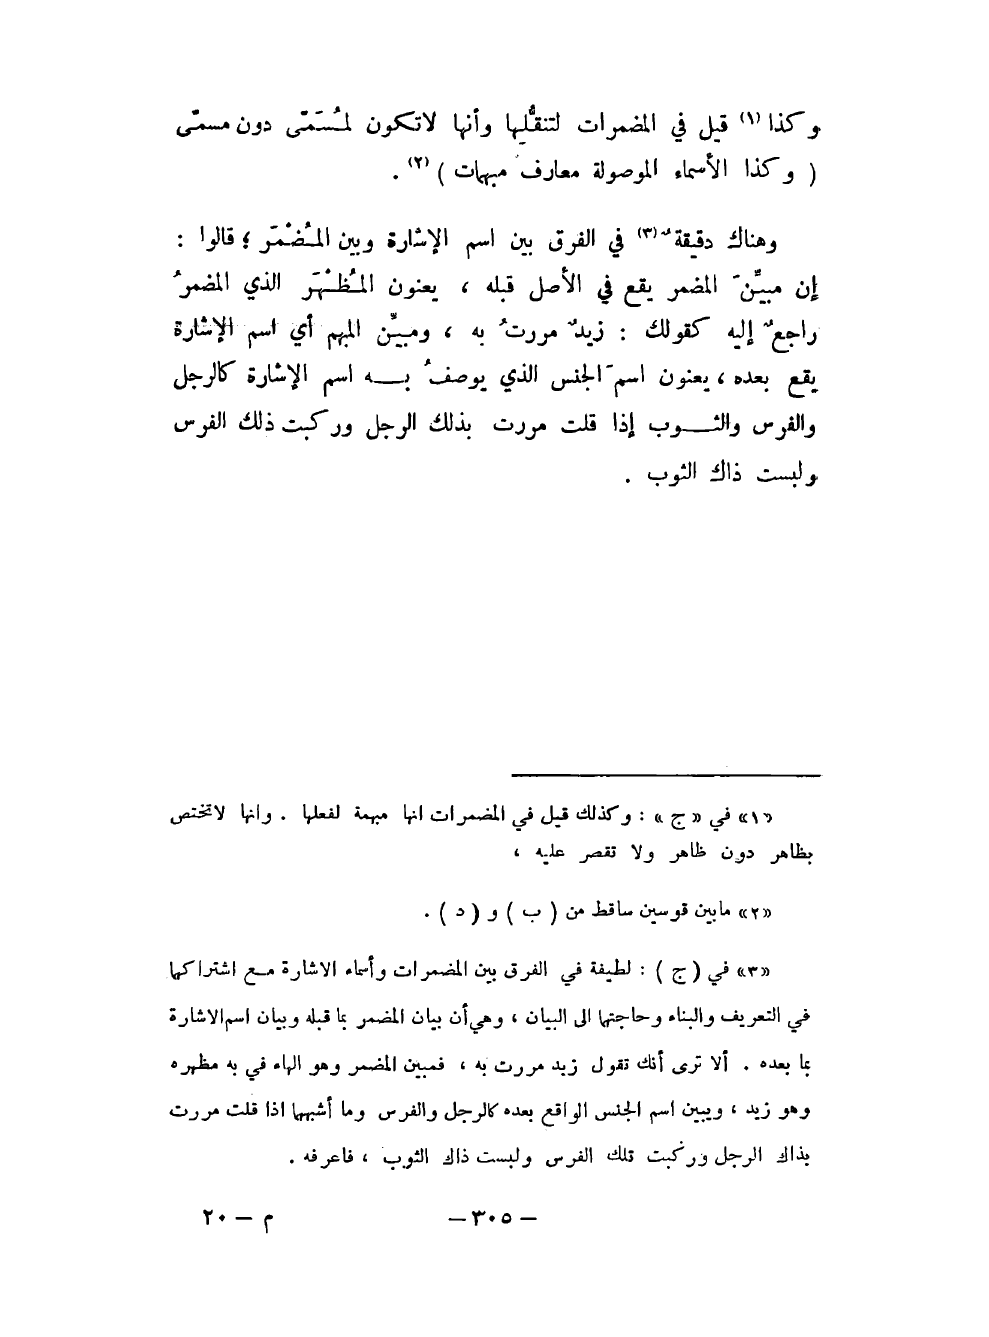 وكذا (١) قيل في المضمرات لتنقُّلها وأنها لاتكون لمُسَمّى دون مسمّى
( وكذا الأسماء الموصولة معارف مبهمات ) (٢) .
وهناك دقيقةٌ (٣) في الفرق بين اسم الإشارة وبين المُضْمَر ؛ قالوا :
إن مبيِّنَ المضمر يقع في الأصل قبله ، يعنون المُظْهَرَ الذي المضمرُ
راجعٌ إليه كقولك : زيدٌ مررتُ به ، ومبيِّن المبهم أي اسم الإشارة
يقع بعده ، يعنون اسمَ الجنس الذي يوصفُ بـــه اسم الإشارة كالرجل
والفرس والثـــوب إذا قلت مررت بذلك الرجل وركبت ذلك الفرس
ولبست ذاك الثوب .
«١» في « ج » : وكذلك قيل في المضمرات انها مبهمة لفعلها . وانها لاتختص
بظاهر دون ظاهر ولا تقصر عليه ،
«٢» مابين قوسين ساقط من ( ب ) و ( د ) .
«٣» في ( ج ) : لطيفة في الفرق بين المضمرات وأسماء الاشارة مــع اشتراكها
في التعريف والبناء وحاجتها الى البيان ، وهي أن بيان المضمر بما قبله وبيان اسم الاشارة
بما بعده . ألا ترى أنك تقول زيد مررت به ، فمبين المضمر وهو الهاء في به مظهره
وهو زيد ، ويبين اسم الجنس الواقع بعده كالرجل والفرس وما أشبهها اذا قلت مررت
بذاك الرجل وركبت تلك الفرس ولبست ذاك الثوب ، فاعرفه .
– ٣٠٥ –
م – ٢٠